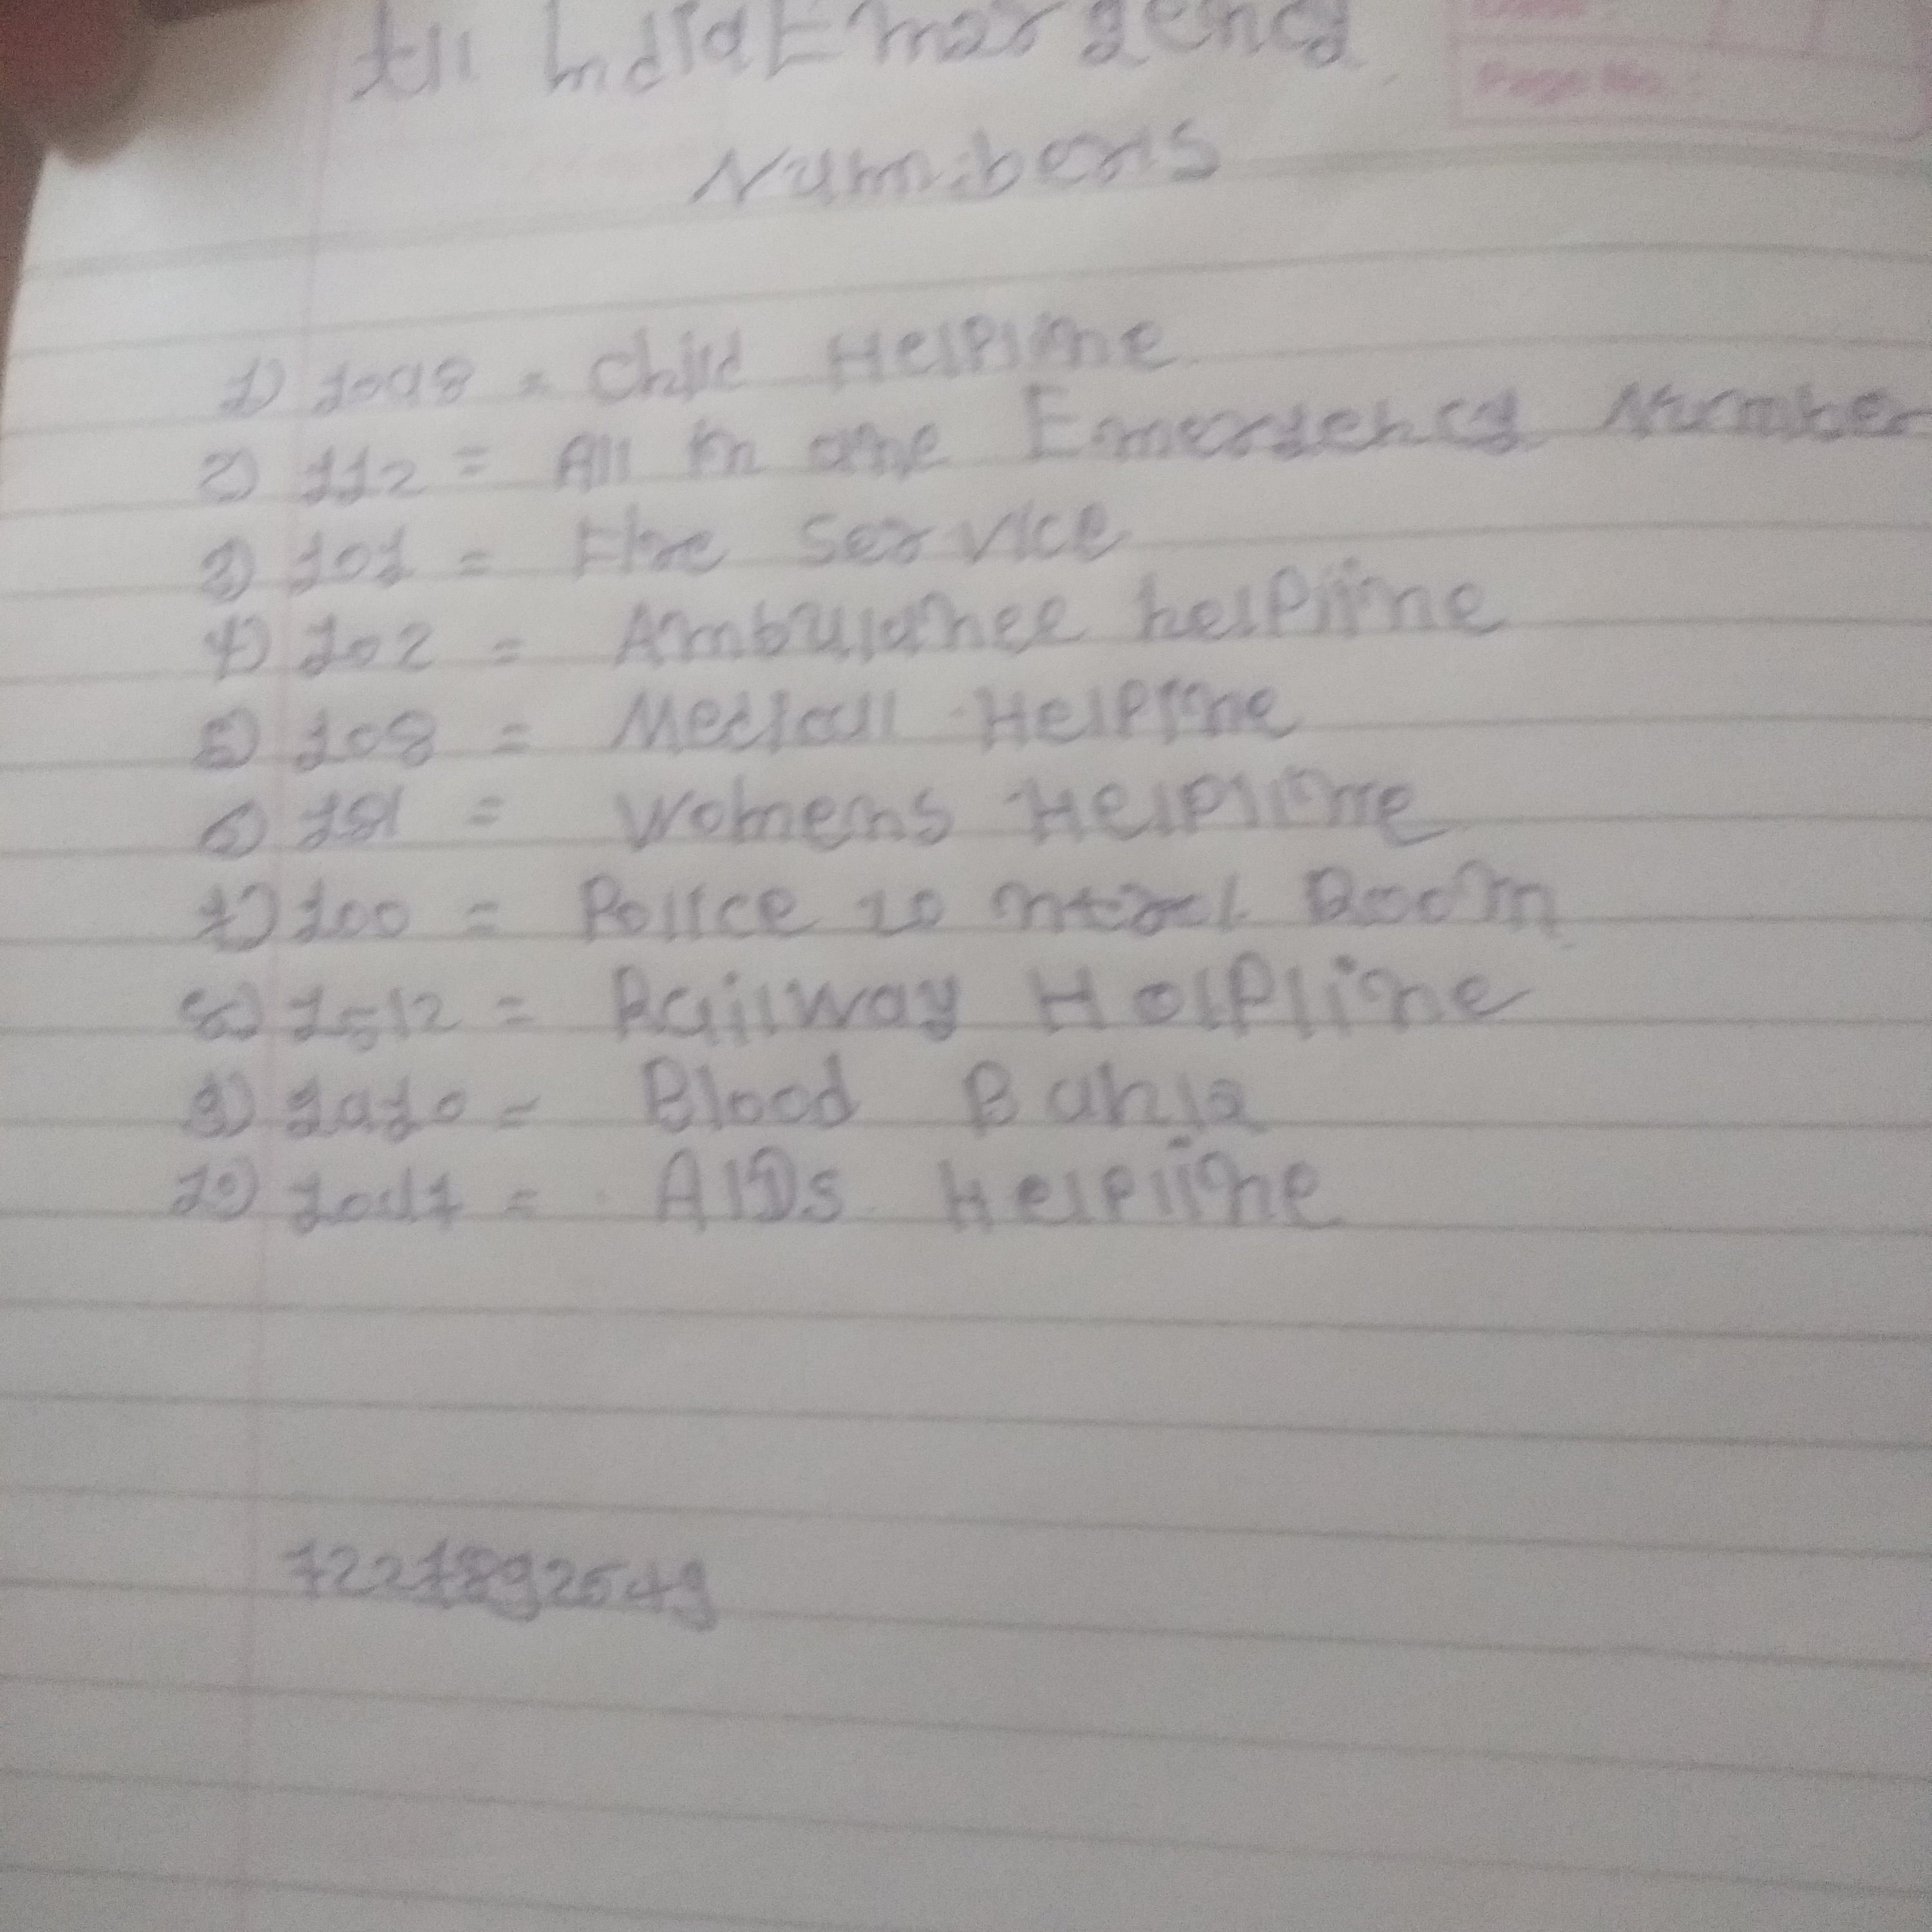 All India Emargency
Numbers
Page No. :
1) 1098 = Child Helpline
2) 112 = All in one Emergency Number
3) 101 = Fire Service
4) 102 = Ambulance helpline
5) 108 = Medicall Helpline
6) 181 = Womens Helpline
7) 100 = Police Room
8) 1512 = Railway Helpline
9) 1910 = Blood Bank
10) = AIDs Helpline
7227892549